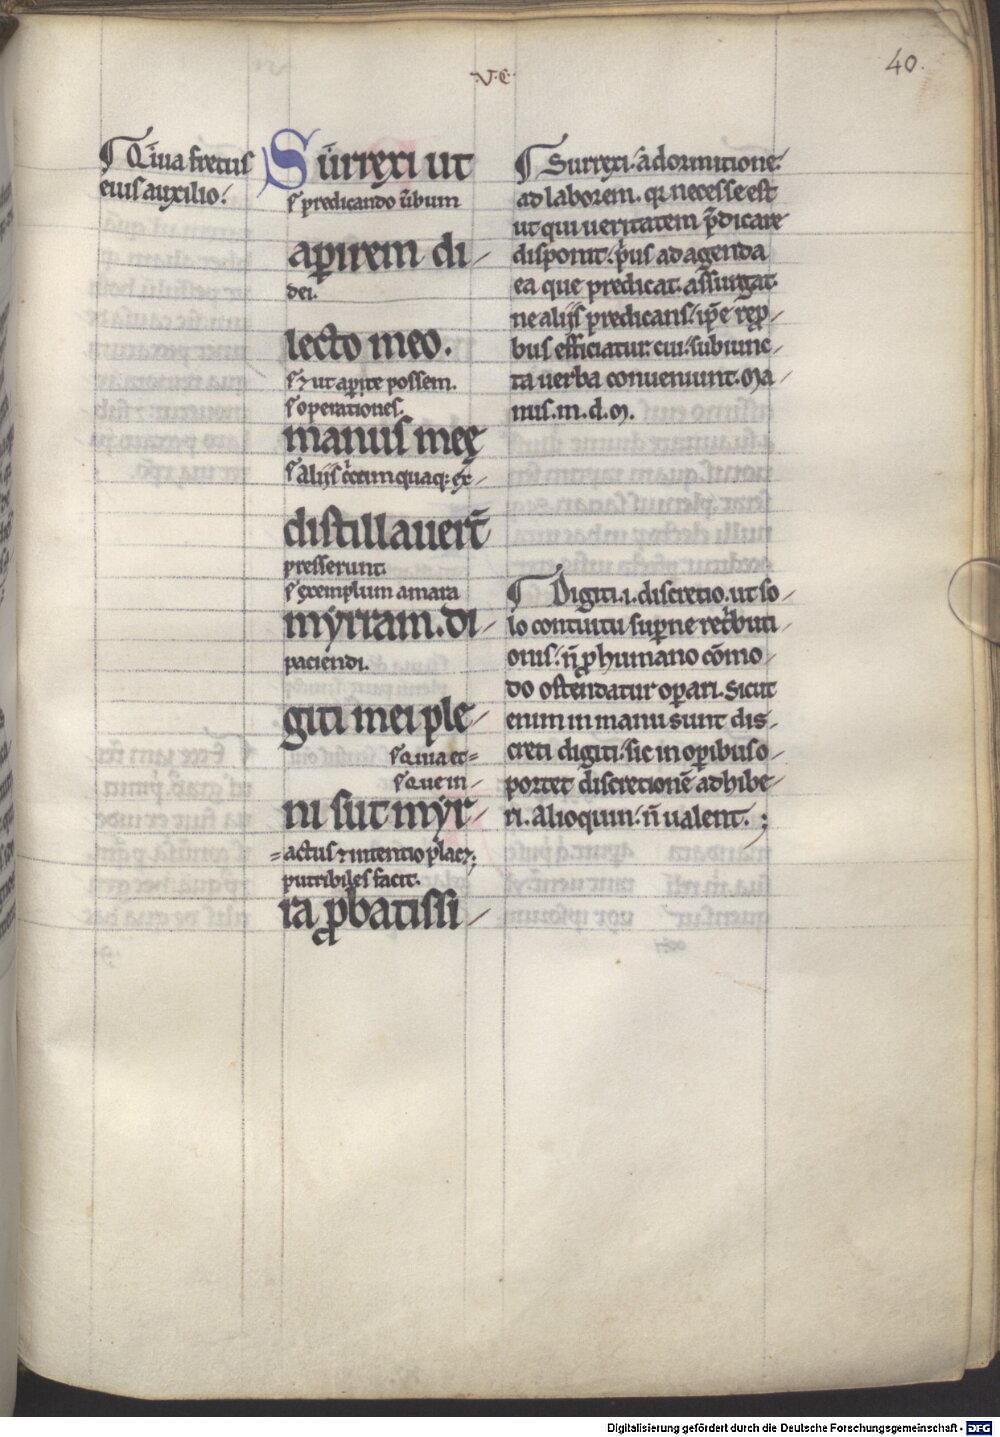 40.
.V.C.
¶ Q̄uia fretus
eius auxilio.
Surrexi ut
s. predicando ūbum
aꝑirem di/
dei.
lecto meo.
s. ⁊ ut aꝑire possem.
s. operationes.
manus meę
s. aliis
distillauer̄t
presserunt.
s. exemplum amara
myrram. di/
paciendi.
giti mei ple/
s. quia et=
s. que in/
ni sūt myr/
=actus ⁊ intentio
putribiles facit.
ra ꝓbatissi/
¶ Surrexi. a dormitione.
ad laborem. qr necesse est
ut qui ueritatem p̄dicare
disponit. pͥus ad agenda
ea que predicat. assurgat.
ne aliis predicans. ip̄e repͦ/
bus efficiatur. cui. subiunc/
ta uerba conueniunt. Ma/
nus. m. d. m.
¶ Digiti .i. discretio. ut so/
lo contuitu suꝑne ret̄buti/
onis. n̄ ꝓ humano cōmo/
do ostendatur oꝑari. Sicut
enim in manu sunt dis/
creti digiti. sic in oꝑibus o/
portet discretionē adhibe/
ri. Alioquin. n̄ ualent. ;
Digitalisierung gefördert durch die Deutsche Forschungsgemeinschaft - DFG